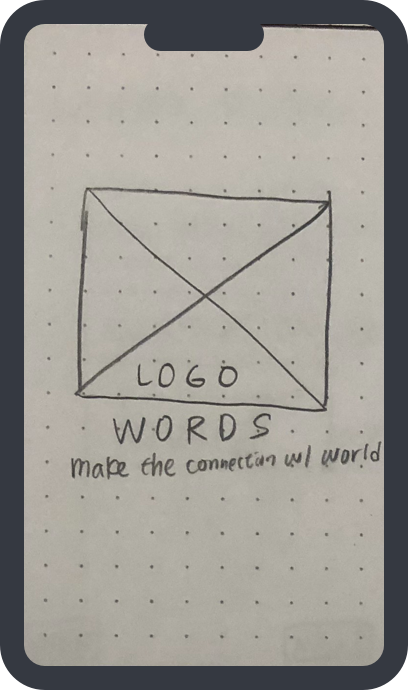 LOGO
WORDS
make the connection w/ world